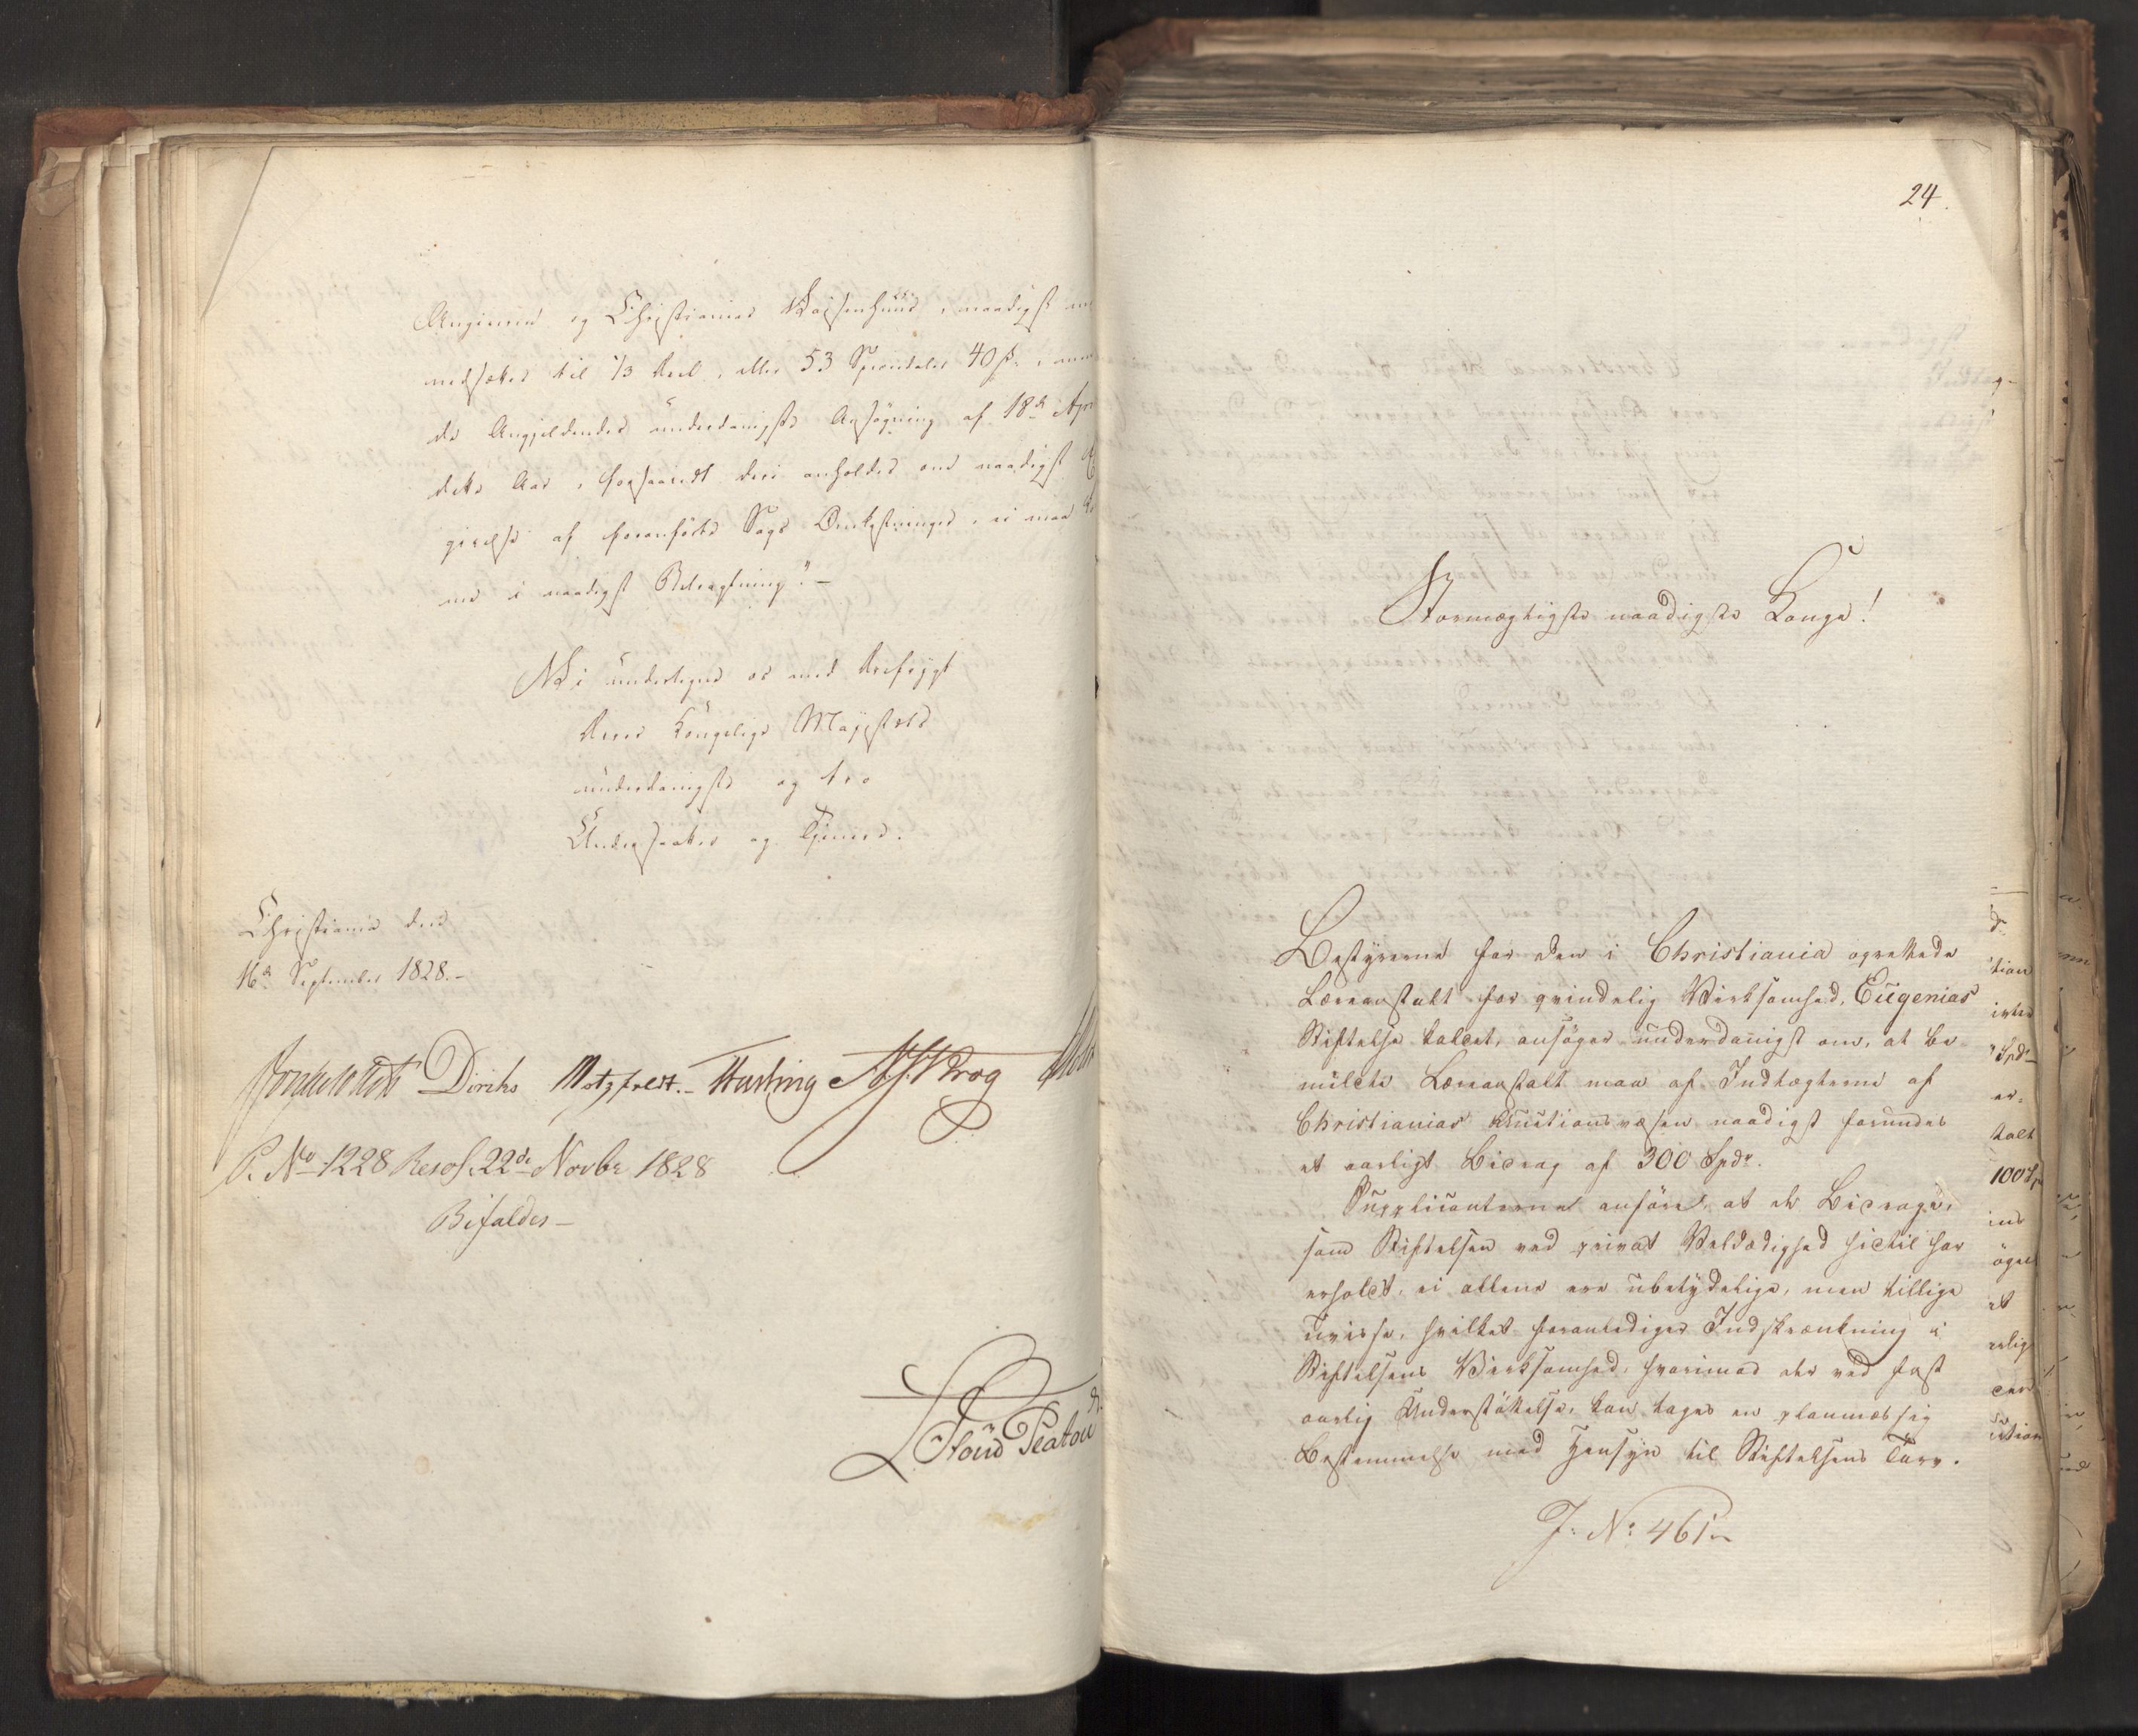 Angiveren og Christianias Waisenhuus, naadigst
nedsættes til 1/3 Deel, eller 53 Speciedaler 40 ß,
de Angjeldendes underdanigste Ansøgning af 18de Apr
dette Aar, forsaavidt deri anholdes om naadigst
givelse af foranførte Sags Omkostninger, ei maa
me i naadigst Betragtning". —
Vi undertegne os med Ærefrygt
Deres Kongelige Majestæts
underdanigste og troe
Undersaatter og Tjenere.
Christiania den
16de September 1828. —
Diriks Motzfeldt. — Hasting Krog
P. No 1228 Resol. 22de Novbr 1828
Bifaldes —
Platou
24.
Stormægtigste naadigste Konge!
Bestyrerne for den i Christiania oprettede
Læreanstalt for qvindelig Virksomhed, Eugenias
Stiftelse kaldet, ansøger underdanigst om, at be
meldte Læreanstalt maa af Indtægterne af
Christianias Auctionsvæsen naadigst forundes
et aarligt Bidrag af 300 Spdr.
Supplicanterne anføre, at de Bidrage,
som Stiftelsen ved privat Veldædighed hidtil har
erholdt, ei allene ere ubetydelige, men tillige
uvisse, hvilket foranlediger Indskrænkning i
Stiftelsens Virksomhed, hvorimod der ved fast
aarlig Understøttelse, kan tages en planmæssig
Bestemmelse med Hensyn til Stiftelsens Tarv.
J: No: 461